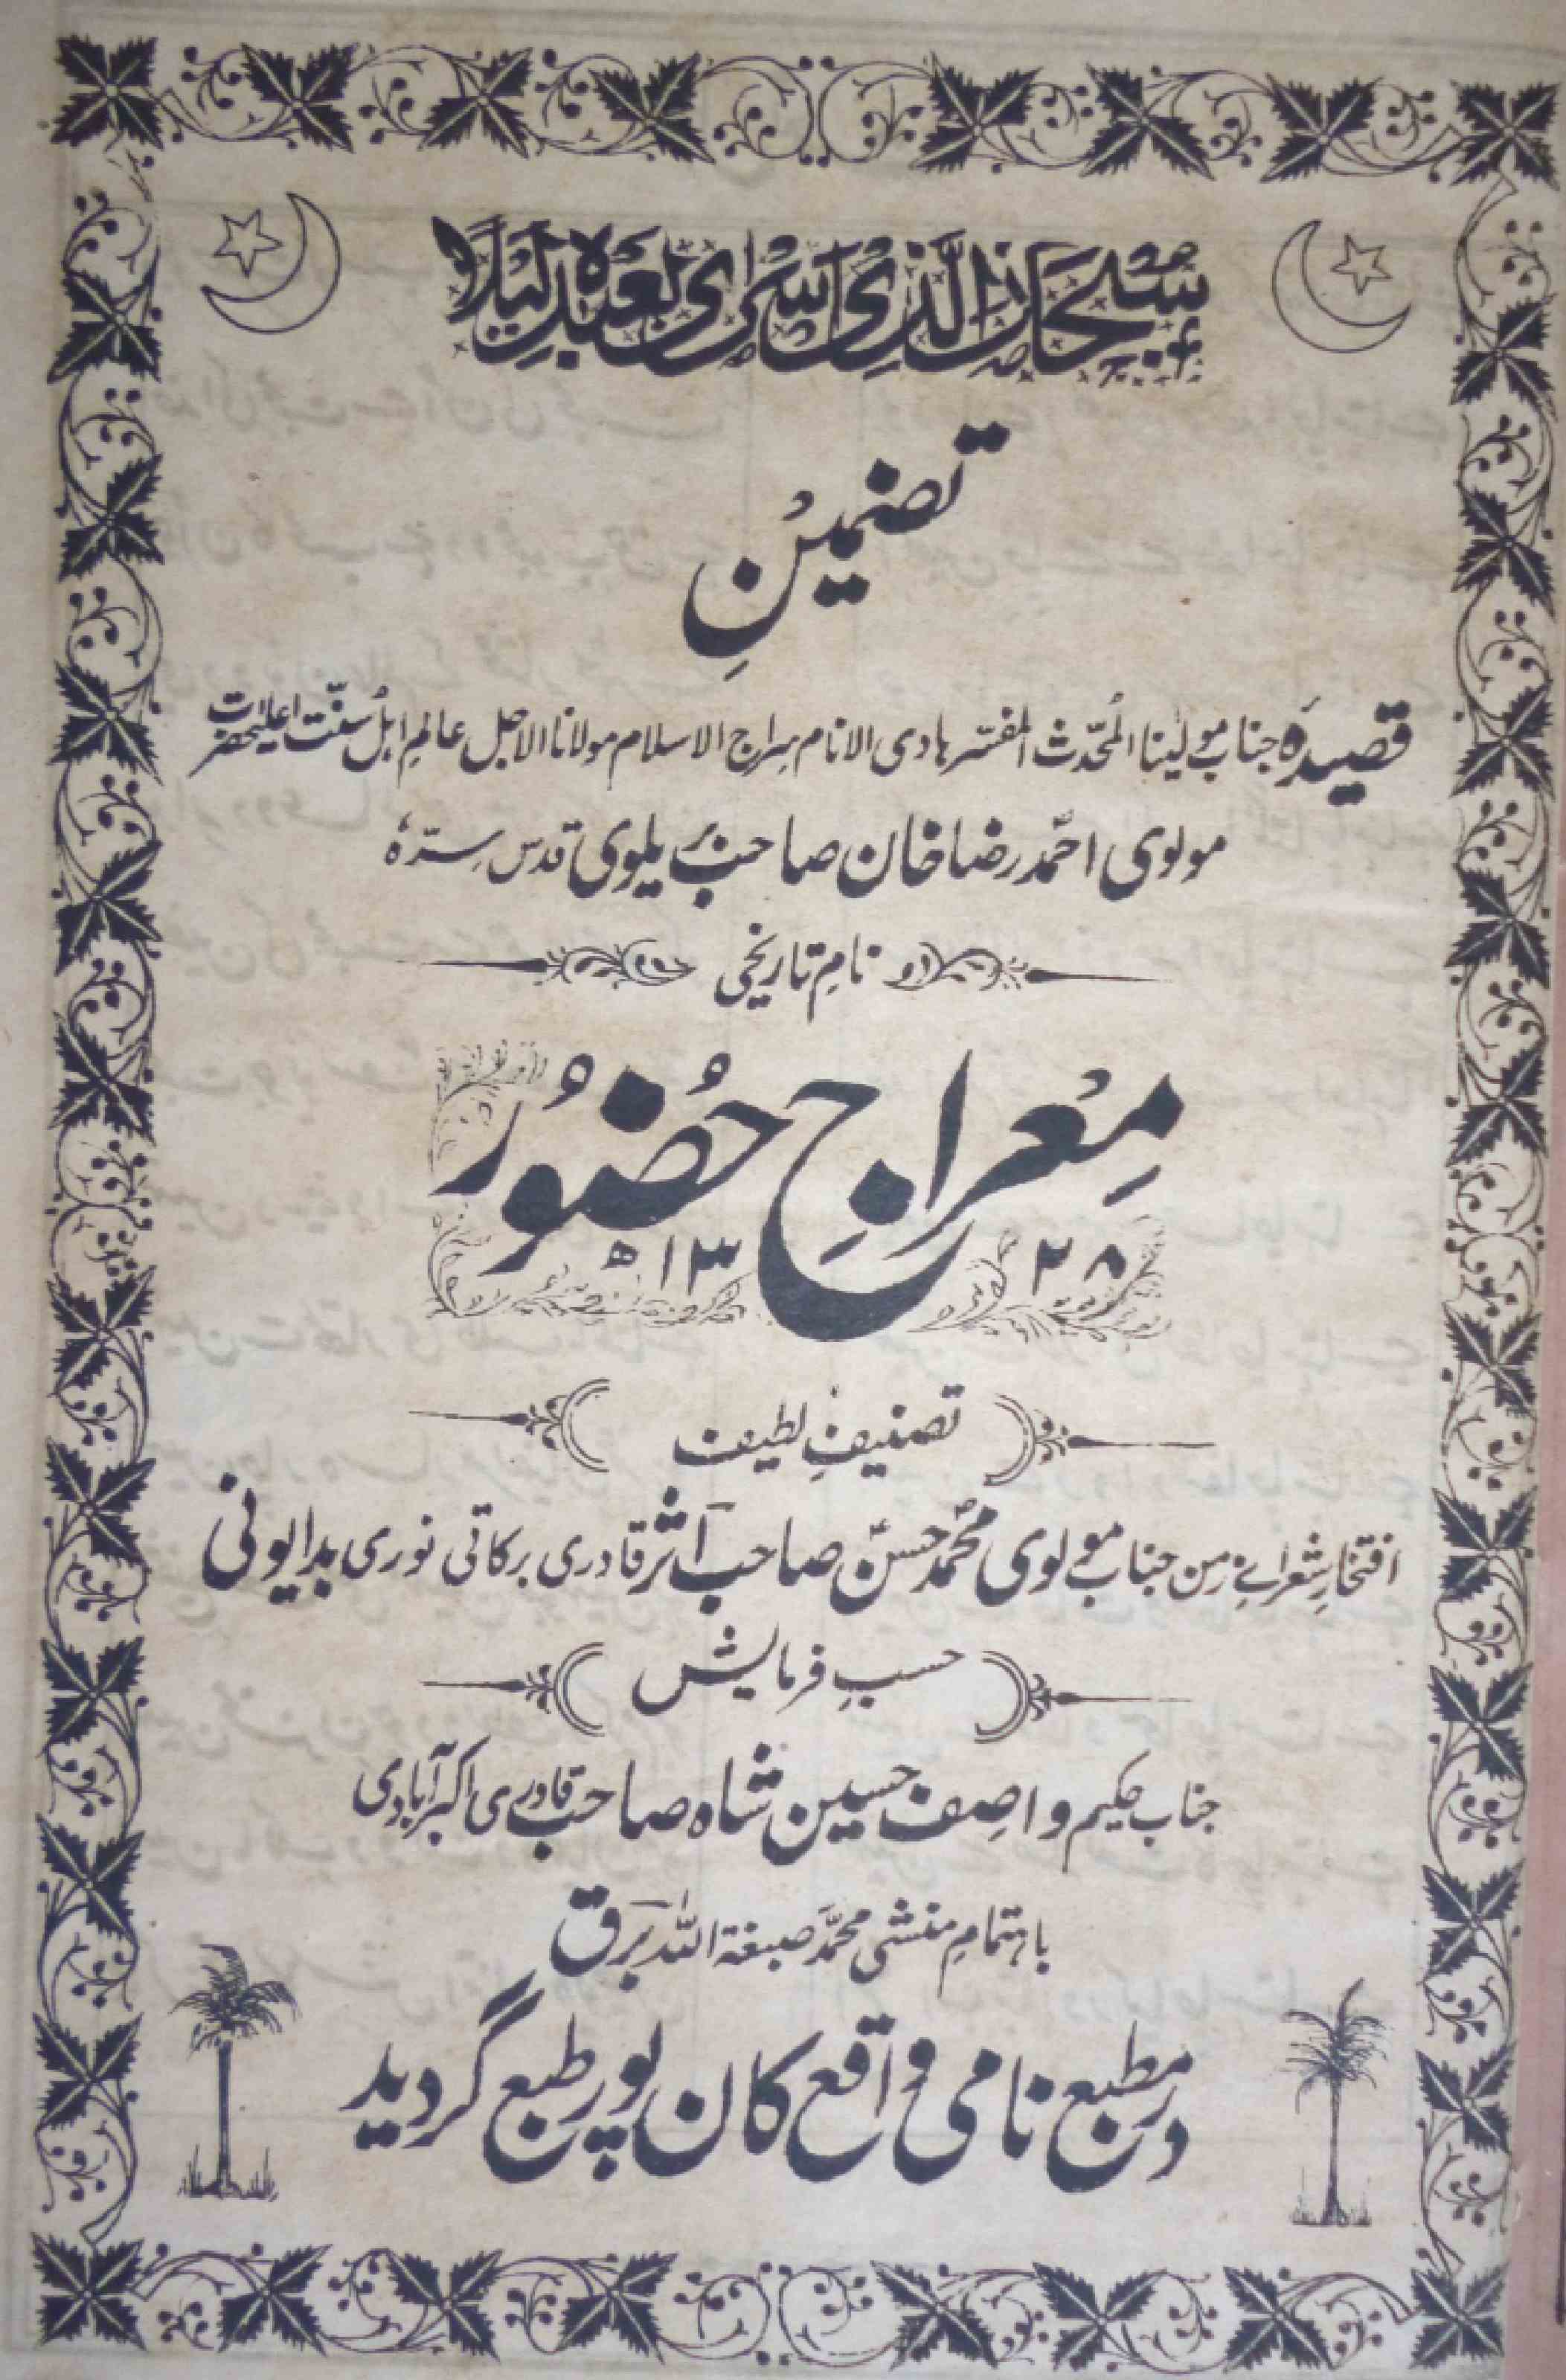 سُبْحَانَ الَّذِیْ اَسْرٰی بِعَبْدِہٖ لَیْلًا
تضمینِ
قصیدہَ جناب مولٰینا المُحدّث المفسّر ہادی الانام سراج الاسلام مولانا الاجل عالمِ اہلِ سنّت اعلیحضرت
مولوی احمد رضا خان صاحب بریلوی قدس سرّہٗ
نامِ تاریخی
مِعراجِ حُضُور
۱۳ھ ۲۸
تصنیفِ لطیف
افتخارِ شعراےِ زمن جناب مولوی محمد حسن صاحب آثر قادری برکاتی نوری بدایونی
حسبِ فرمایش
جناب حکیم واصف حسین شاہ صاحب قادری اکبرآبادی
باہتمامِ منشی محمد صبغۃ اللہ برق
در مطبع نامی واقع کان پور طبع گردید